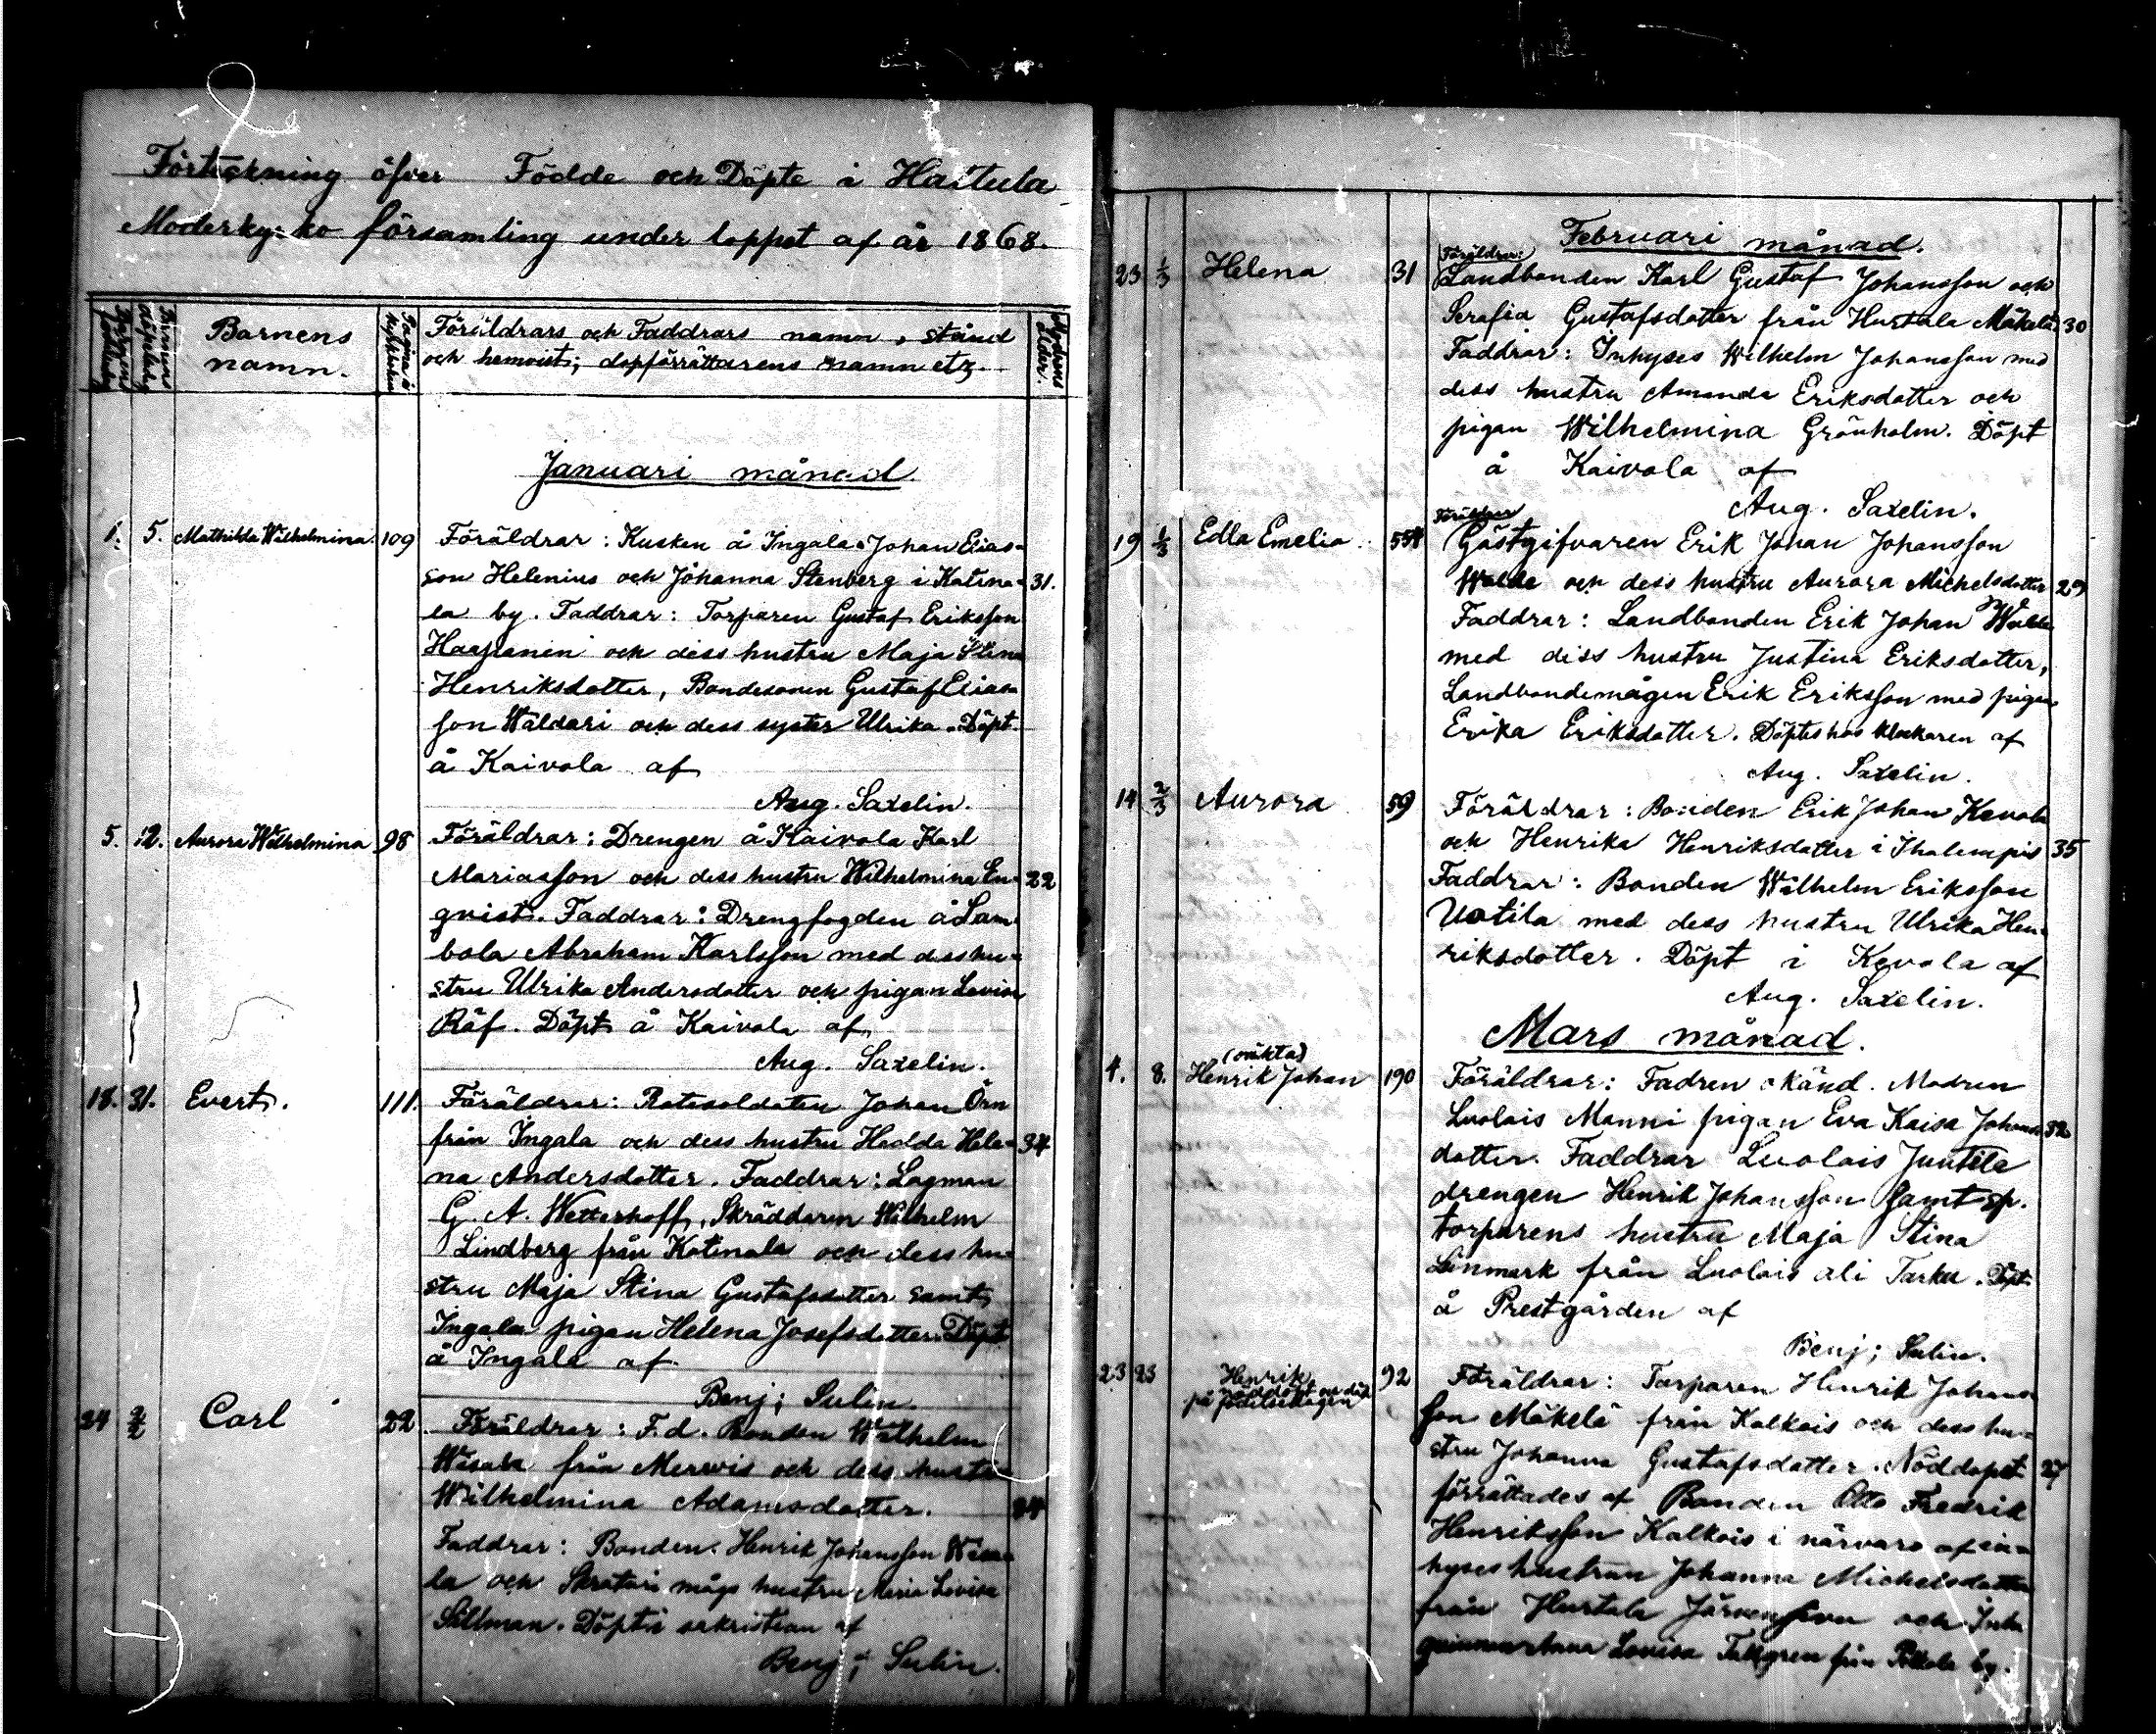 Förteckning öfver Födde och Döpte i Hattula
Moderkyrko församling under loppet af år 1868.
Barnens
namn.
Pagina i
Föräldrars och Faddrars namn, stånd
och hemvist; dopförrättarens namn etz.
Modrens
ålder.
Januari månad.
1. 5. Mathilda Wilhelmina. 109 Föräldrar: Kusken å Ingala Johan Elias-
son Helenius och Johanna Stenberg i Katina- 31.
la by. Faddrar: Torparen Gustaf Eriksson
Haapanen och dess hustru Maja Stina
Henriksdotter, Bondesonen Gustaf Elias-
son Wäldäri och dess syster Ulrika. Döpt
å Kaivola af
Aug. Saxelin.
5. 12. Aurora Wilhelmina 98 Föräldrar: Drengen å Kaivola Karl
Mariasson och dess hustru Wilhelmina En- 22
qvist. Faddrar: Drengfogden å Sam-
bola Abraham Karlsson med dess hu-
stru Ulrika Andersdotter och pigan Lovisa
Räf. Döpt å Kaivola af
Aug. Saxelin.
18. 31. Evert. 111. Föräldrar: Rotesoldaten Johan Örn
från Ingala och dess hustru Hedda Hele- 34
na Andersdotter. Faddrar: Lagman
G. A. Wetterhoff, Skräddaren Wilhelm
Lindberg från Katinala och dess hu-
stru Maja Stina Gustafsdotter samt
Ingala pigan Helena Josefsdotter. Döpt
å Ingala af
Benj; Sulin.
24 2/2 Carl 22. Föräldrar: F.d. Bonden Wilhelm
Wesala från Merwis och dess hustru
Wilhelmina Adamsdotter. 24
Faddrar: Bonden Henrik Johansson Wesa-
la och Skrätari mågs hustru Maria Lovisa
Sillman. Döpt i sakristian af
Benj; Sulin.
Februari månad.
Föräldrar:
23 1/3 Helena 31 Landbonden Karl Gustaf Johansson och
Serafia Gustafsdotter från Hurtala Mäkelä 30
Faddrar: Inhyses Wilhelm Johansson med
dess hustru Amanda Eriksdotter och
pigan Wilhelmina Grönholm. Döpt
å Kaivola af
Aug. Saxelin.
Föräldrar
19 1/3 Edla Emelia. 554 Gästgifvaren Erik Johan Johansson
Walde och dess hustru Aurora Michelsdotter 29
Faddrar: Landbonden Erik Johan Walde
med dess hustru Justina Eriksdotter,
Landbondemågen Erik Eriksson med pigan
Erika Eriksdotter. Döptes hos klockaren af
Aug. Saxelin.
14 2/3 Aurora 59 Föräldrar: Bonden Erik Johan Kevola
och Henrika Henriksdotter i Ihalempis 35
Faddrar: Bonden Wilhelm Eriksson
Uotila med dess hustru Ulrika Hen-
riksdotter. Döpt i Kevola af
Aug. Saxelin.
Mars månad.
(oäkta)
4. 8. Henrik Johan 190 Föräldrar: Fadren okänd. Modren
Luolais Manni pigan Eva Kaisa Johans- 32
dotter. Faddrar Luolais Juutila
drengen Henrik Johansson samt sp.
torparens hustru Maja Stina
Linmark från Luolais ali Tarku. Döpt
å Prestgården af
Benj; Sulin.
23 23 Henrik 92 Föräldrar: Torparen Henrik Johans-
nöddöpt och död
på födelsedagen
son Mäkelä från Kalkois och dess hu-
stru Johanna Gustafsdotter. Nöddopet 27
förrättades af Bonden Otto Fredrik
Henriksson Kalkois i närvaro af in-
hyses hustrun Johanna Michelsdotter
från Hurtala Järvensivu och Inh.
qvinnan Anna Lovisa Tallgren från Pelkola by.